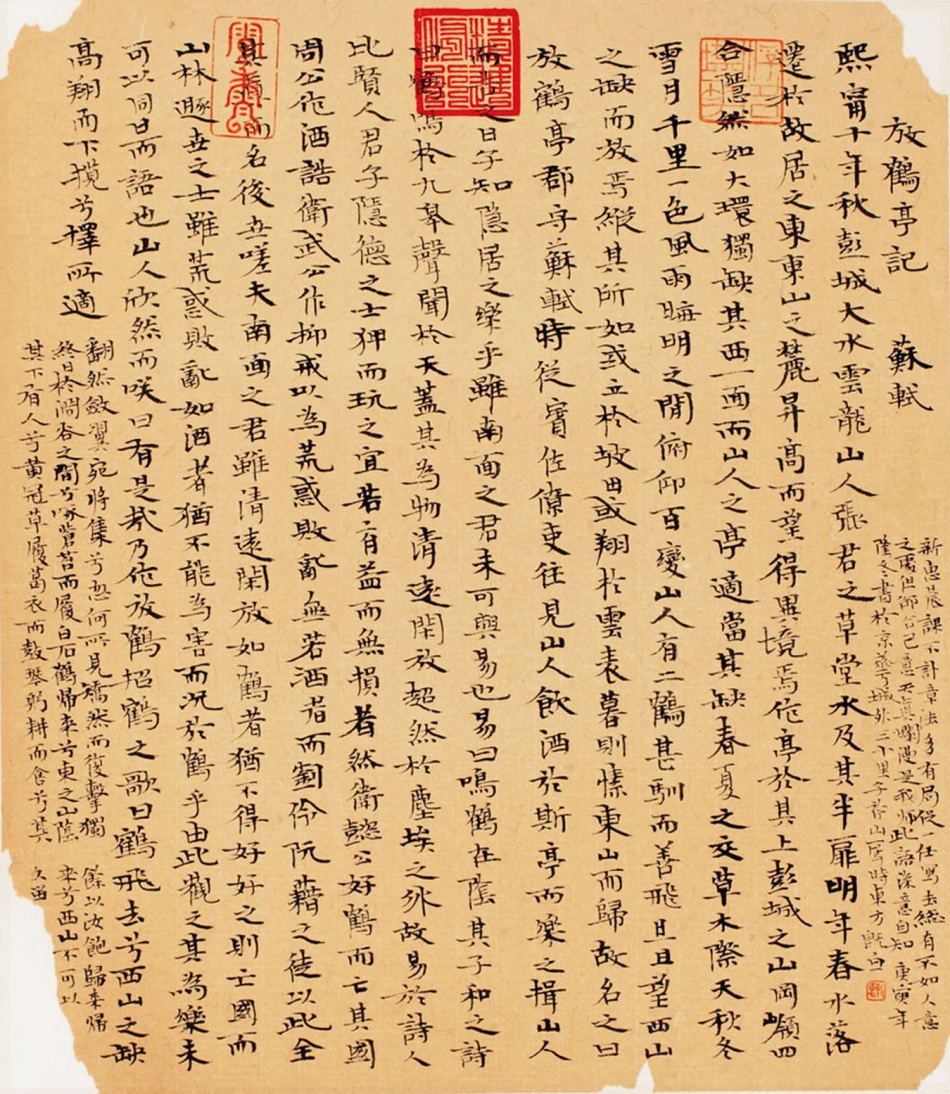 放鶴亭記 蘇軾
新惠晨課不計章法多有局促一任寫去縱有不如人意
之處但師己意天真爛漫是我師此語深意自知庚寅年
隆冬書於京華城外三十里山居時東方既白
熙甯十年秋彭城大水雲龍山人張君之草堂水及其半扉明年春水落
遷於故居之東東山之麓昇高而望得異境焉作亭於其上彭城之山岡嶺四
合隱然如大環獨缺其西一面而山人之亭適當其缺春夏之交草木際天秋冬
雪月千里一色風雨晦明之間俯仰百變山人有二鶴甚馴而善飛旦且望西山
之缺而放焉縱其所如或立於坡田或翔於雲表暮則愫東山而歸故名之曰
放鶴亭郡守蘇軾時從賓佐僚吏往見山人飲酒於斯亭而樂之揖山人
而告之曰子知隱居之樂乎雖南面之君未可與易也易曰鳴鶴在陰其子和之詩
曰鶴鳴於九皋聲聞於天蓋其為物清遠閑放超然於塵埃之外故易於詩人
比賢人君子隱德之士狎而玩之宜若有益而無損者然衛懿公好鶴而亡其國
周公作酒誥衛武公作抑戒以為荒惑敗亂無若酒者而劉伶阮藉之徒以此全
其真而名後世嗟夫南面之君雖清遠閑放如鶴者猶不得好好之則亡國而
山林遯世之士雖荒惑敗亂如酒者猶不能為害而況於鶴乎由此觀之其為樂未
可以同日而語也山人欣然而笑曰有是哉乃作放鶴招鶴之歌曰鶴飛去兮西山之缺
高翔而下攬兮擇所適
翻然斂翼宛將集兮忽何所見矯然而復擊獨
終日於澗谷之間兮啄蒼苔而履白石鶴歸來兮東之山陰
其下有人兮黃冠草履葛衣而鼓琴躬耕而食兮其
餘以汝飽歸來歸
來兮西山不可以
久留